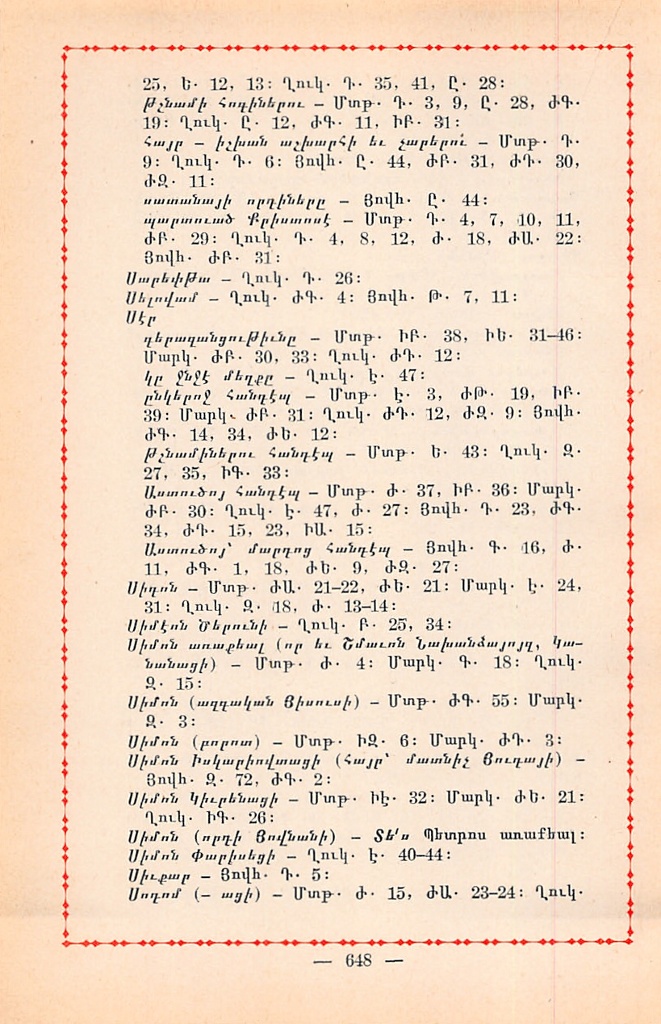 25, Ե. 12, 13։ Ղուկ. Դ. 35, 41, Ը. 28։
թշնամի հոգիներու – Մտթ. Դ. 3, 9, Ը. 28, ԺԳ.
19։ Ղուկ. Ը. 12, ԺԳ. 11, ԻԲ. 31։
հայր – իշխան աշխարհի եւ չարերու – Մտթ. Դ.
9։ Ղուկ. Դ. 6։ Յովհ. Ը. 44, ԺԲ. 31, ԺԴ. 30,
ԺԶ. 11։
սատանայի որդիները – Յովհ. Ը. 44։
պարտուած Քրիստոսէ – Մտթ. Դ. 4, 7, 10, 11,
ԺԲ. 29։ Ղուկ. Դ. 4, 8, 12, Ժ. 18, ԺԱ. 22։
Յովհ. ԺԲ. 31։
Սարեփթա – Ղուկ. Դ. 26։
Սելովամ – Ղուկ. ԺԳ. 4։ Յովհ. Թ. 7, 11։
Սէր
գերազանցութիւնը – Մտթ. ԻԲ. 38, ԻԵ. 31–46։
Մարկ. ԺԲ. 30, 33։ Ղուկ. ԺԴ. 12։
կը ջնջէ մեղքը – Ղուկ. Է. 47։
ընկերոջ հանդէպ – Մտթ. Է. 3, ԺԹ. 19, ԻԲ.
39։ Մարկ. ԺԲ. 31։ Ղուկ. ԺԴ. 12, ԺԶ. 9։ Յովհ.
ԺԳ. 14, 34, ԺԵ. 12։
թշնամիներու հանդէպ – Մտթ. Ե. 43։ Ղուկ. Զ.
27, 35, ԻԳ. 33։
Աստուծոյ հանդէպ – Մտթ. Ժ. 37, ԻԲ. 36։ Մարկ.
ԺԲ. 30։ Ղուկ. Է. 47, Ժ. 27։ Յովհ. Դ. 23, ԺԳ.
34, ԺԴ. 15, 23, ԻԱ. 15։
Աստուծոյ՝ մարդոց հանդէպ – Յովհ. Գ. 16, Ժ.
11, ԺԳ. 1, 18, ԺԵ. 9, ԺԶ. 27։
Սիդոն – Մտթ. ԺԱ. 21–22, ԺԵ. 21։ Մարկ. Է. 24,
31։ Ղուկ. Զ. 18, Ժ. 13–14։
Սիմէոն Ծերունի – Ղուկ. Բ. 25, 34։
Սիմոն առաքեալ (որ եւ Շմաւոն Նախանձայոյզ, Կա–
նանացի) – Մտթ. Ժ. 4։ Մարկ. Գ. 18։ Ղուկ.
Զ. 15։
Սիմոն (ազգական Յիսուսի) – Մտթ. ԺԳ. 55։ Մարկ.
Զ. 3։
Սիմոն (բորոտ) – Մտթ. ԻԶ. 6։ Մարկ. ԺԴ. 3։
Սիմոն Իսկարիովտացի (հայր՝ մատնիչ Յուդայի) –
Յովհ. Զ. 72, ԺԳ. 2։
Սիմոն Կիւրենացի – Մտթ. ԻԷ. 32։ Մարկ. ԺԵ. 21։
Ղուկ. ԻԳ. 26։
Սիմոն (որդի Յովնանի) – Տե՛ս Պետրոս առաքեալ։
Սիմոն Փարիսեցի – Ղուկ. Է. 40–44։
Սիւքար – Յովհ. Դ. 5։
Սոդոմ (– ացի) – Մտթ. Ժ. 15, ԺԱ. 23–24։ Ղուկ.
— 648 —